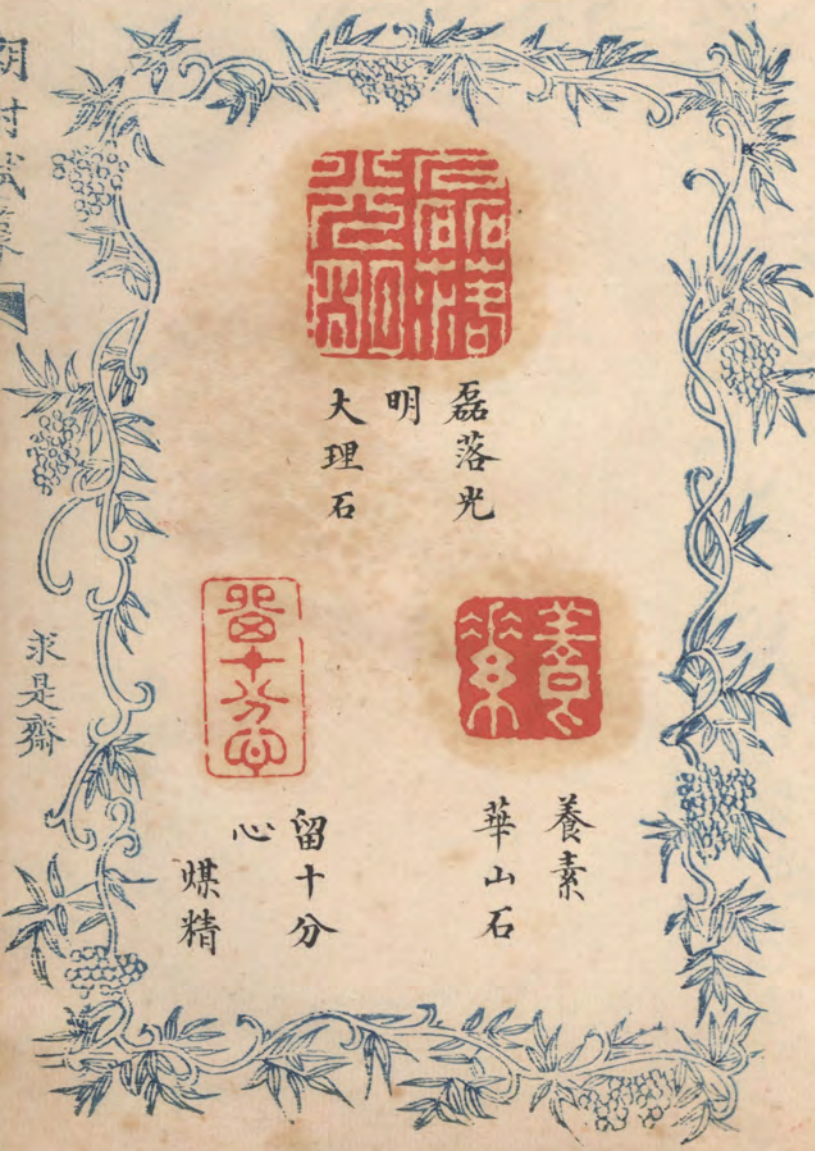 磊落
光明
磊落光
明
大理石
養
素
養素
華山石
留十分心
留十分
心
煤精
求是齋